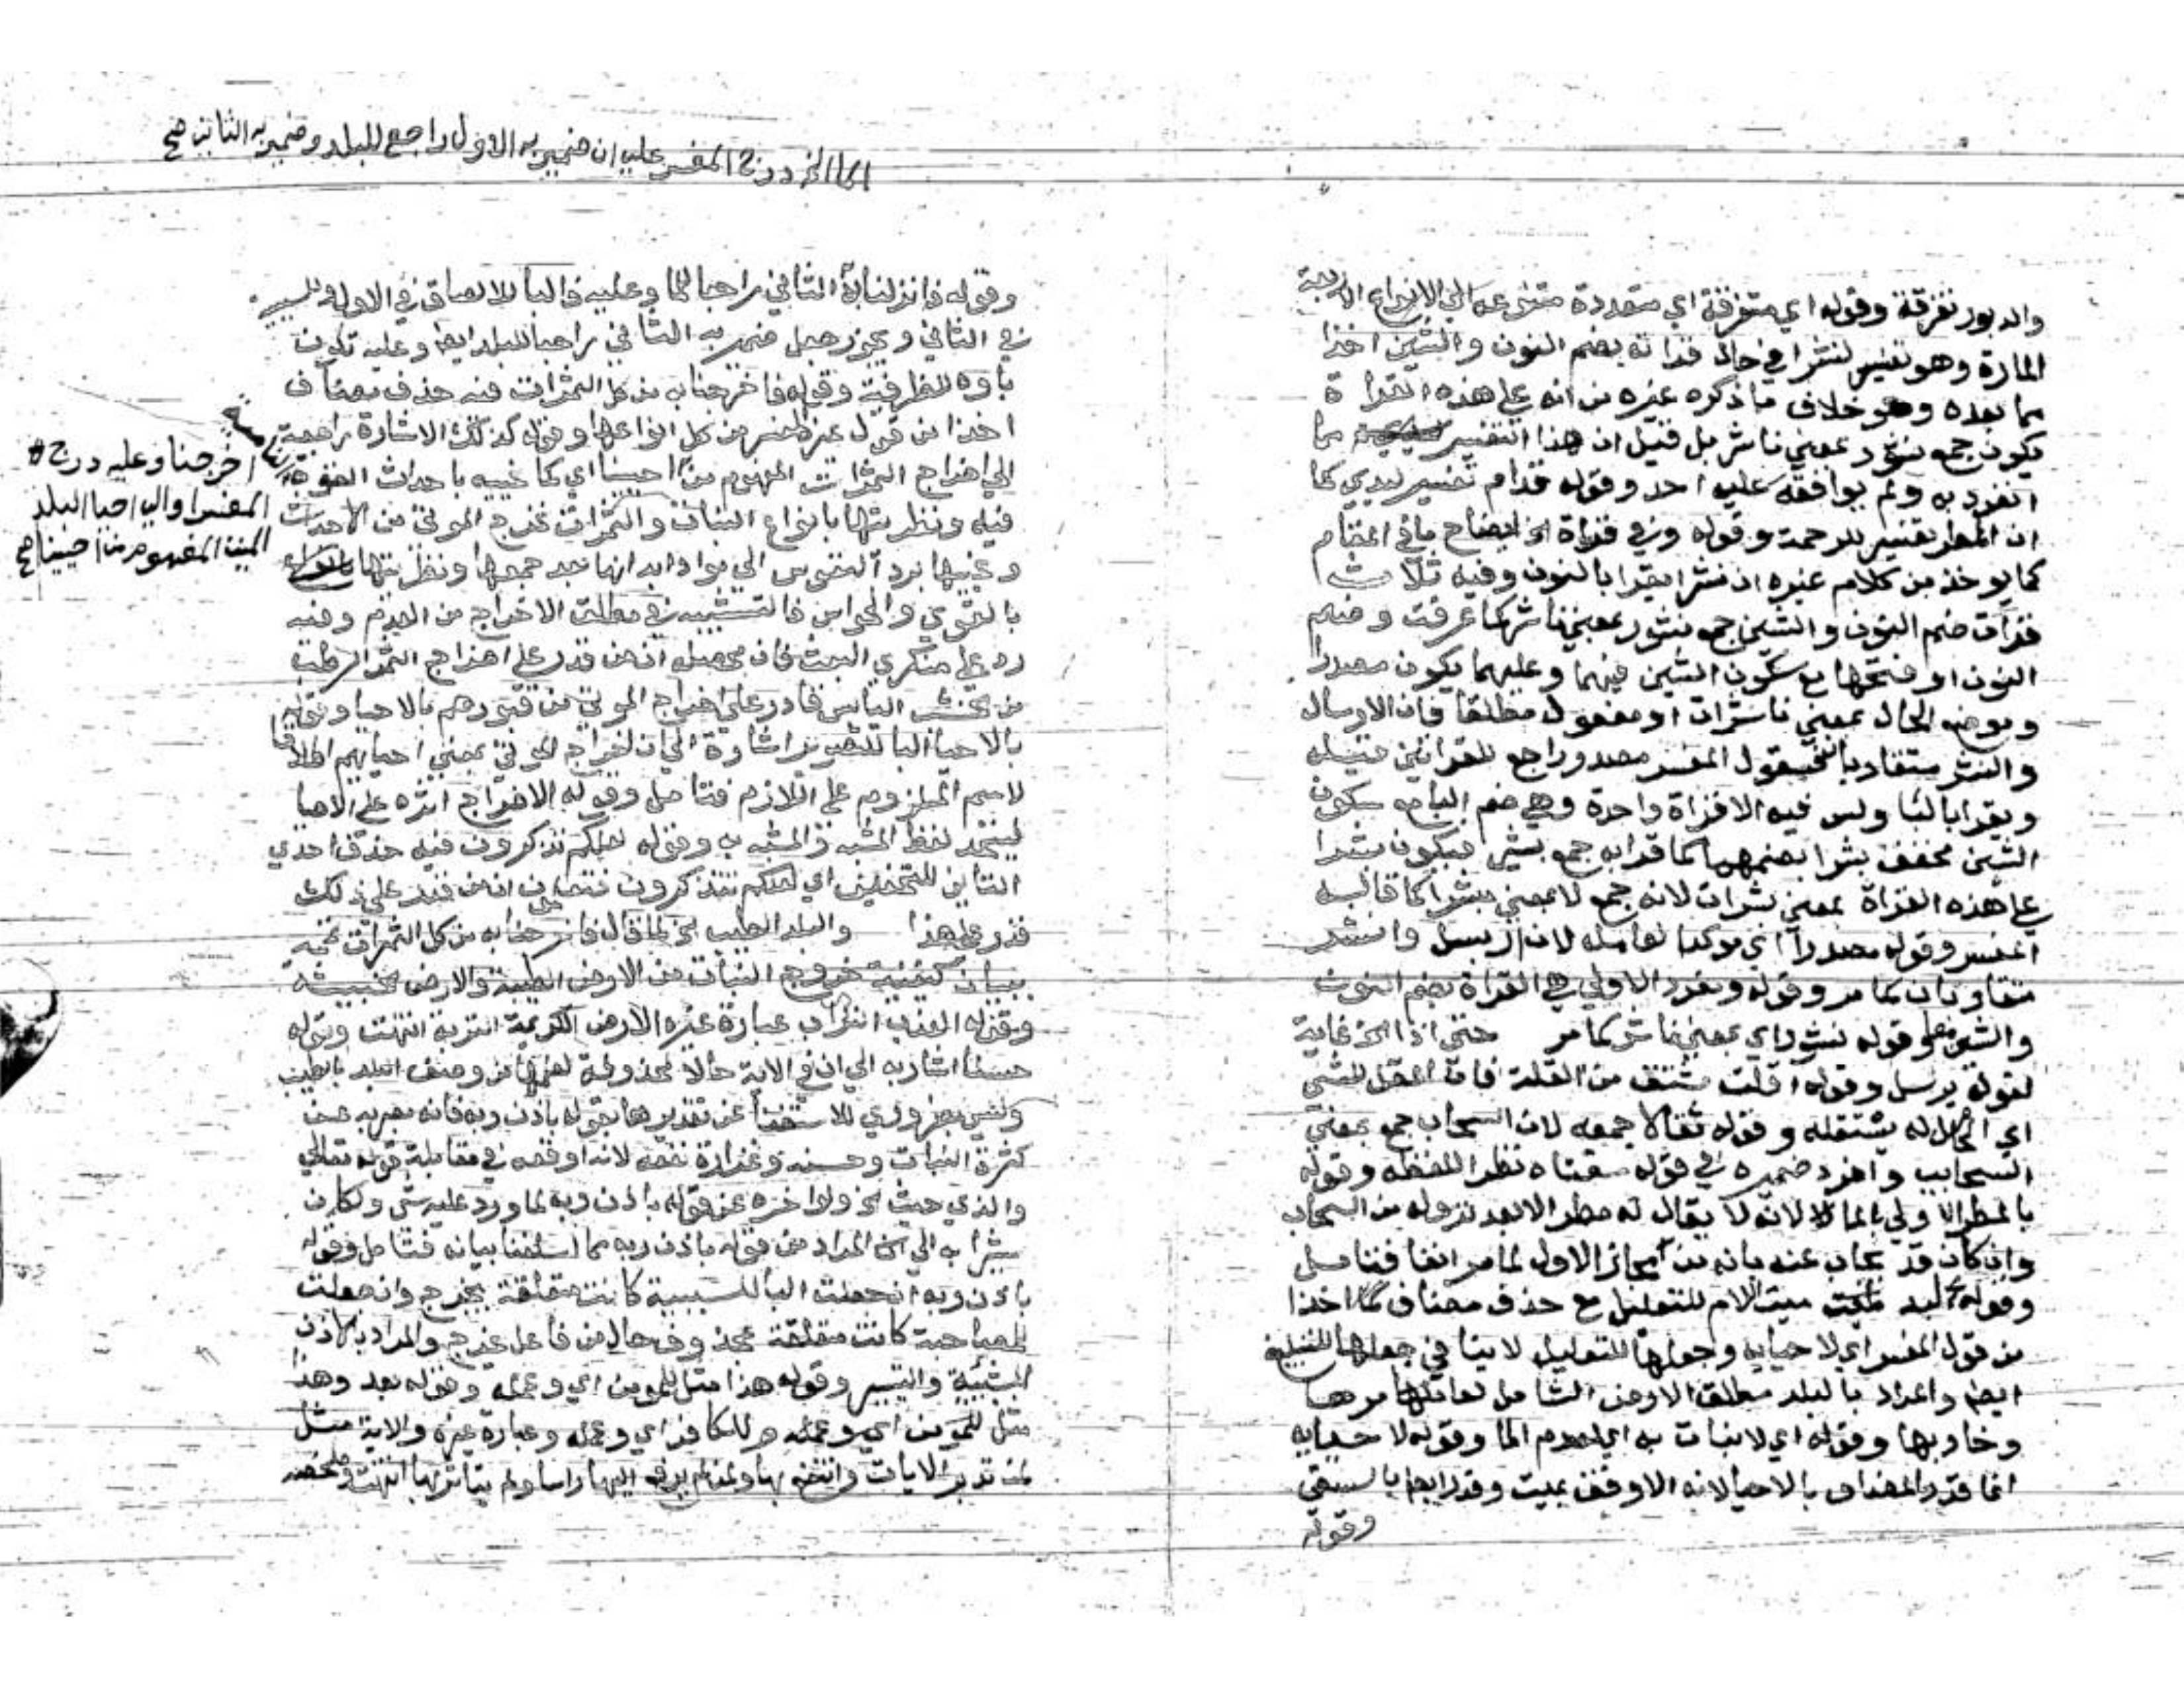 والدبور تفرقة وقوله اي متفرقة اي متعددة متنوعة الي الانواع الاربعة
المارة وهو تفسير لنشرا في حال قراته بضم النون والشين اخذا
مما بعده وهو خلاف ما ذكره غيره من انه علي هذه القراة
يكون جمع نشور بمعني ناشر بل قيل ان هذا التفسير مما
انفرد به ولم يوافقه عليه احد وقوله قدام تفسير ليدي كما
ان المطر تفسير للرحمة وقوله وفي قراة الخ ايضاح ما في المقام
كما يوخذ من كلام غيره ان نشرا يقرا بالنون وفيه ثلاث
قرآت ضم النون والشين جمع نشور بمعني ناشر كما عرفت وضم
النون او فتحها مع سكون الشين فيهما وعليهما يكون مصدرا
وموضعه الحال بمعني ناشرات او مفعول مطلقا فان الارسال
والنشر متقاربان فقول المفسر مصدر راجع للقراتين قبله
ويقرا بالبا وليس فيه الا قراة واحدة وهي ضم البا مع سكون
الشين مخفف بشرا بضمهما كما قرا به جمع بشير فيكون بشرا
علي هذه القراة بمعني بشرات لانه جمع لا بمعني مبشرا كما قاله
المفسر وقوله مصدرا اي موكدا لعامله لان ارسل وانشر
متقاربان كما مر وقوله ومفرد الاولي هي القراة بضم النون
والشين وقوله نشور اي بمعني ناشر كما مر حتي اذا الخ غاية
لقوله يرسل وقوله اقلت مشتق من القلة فان المقل للشي
اي الحامل له يستقله وقوله ثقالا جمعه لان السحاب جمع بمعني
السحايب وافرد ضميره في قوله سقناه نظرا للفظه وقوله
بالمطر الاولي بالما لانه لا يقال له مطر الا بعد نزوله من السحاب
وان كان قد يجاب عنه بانه من مجاز الاول لما مر انفا فتامل
وقوله لبلد ميت اللام للتعليل مع حذف مضاف كما اخذا
من قول المفسر اي لاحيايه وجعلها للتعليل لا ينافي جعلها للتبليغ
ايضا والمراد بالبلد مطلق الارض الشامل لعامرها
وخاربها وقوله اي لا نبات به اي لعدم الما وقوله لاحيايه
انما قدر المضاف بالاحيا لانه الاوفق بميت وقدر ايضا بالسقي
وقوله
اي الما الخ درج المفسر علي ان ضمير به الاول راجع للبلد وضمير به الثاني صح
وقوله فانزلنا به الثاني راجعا للما وعليه فالبا للالصاق في الاول وللسببية
في الثاني ويجوز جعل ضمير به الثاني راجعا للبلد ايضا وعليه تكون
باوه للظرفية وقوله فاخرجنا به من كل الثمرات فيه حذف مضاف
اخذا من قول غيره المفسر من كل انواعها وقوله كذلك الاشارة راجعة
الي اخراج الثمرات المفهوم من احيينا اي كما نحييه باحداث القوة
فيه ونظريتها بانواع النبات والثمرات نخرج الموتي من الاجداث
ونحييها برد النفوس الي مواد ابدانها بعد جمعها ونظريتها
بالقوي والحواس فالتشبيه في مطلق الاخراج من العدم وفيه
رد علي منكري البعث فان محصله ان من قدر علي اخراج الثمر الرطب
من الخشب اليابس قادر علي اخراج الموتي من قبورهم بالاحيا وقوله
بالاحيا البا للتصوير اشارة الي ان اخراج الموتي بمعني احيايهم اطلاقا
لاسم الملزوم علي اللازم فتامل وقوله الاخراج اثره علي الاحيا
ليتحد لفظ المشبه والمشبه به وقوله لعلكم تذكرون فيه حذف احدي
التاين للتخفيف اي لعلكم تتذكرون فتعلمون ان من قدر علي ذلك
قدر علي هذا والبلد الطيب الخ لما قال فاخرجنا به من كل الثمرات تممه
ببيان كيفية خروج النبات من الارض الطيبة والارض الخبيثة
وقوله العذب التراب عبارة غيره الارض الكريمة التربة انتهت وقوله
حسنا اشار به الي ان في الاية حالا محذوفة لفهمها من وصف البلد بالطيب
وليس بضروري للاستغنا عن تقديرها بقوله باذن ربه فانه يعبر به عن
كثرة النبات وحسنه وغزارة نفعه لانه اوقعه في مقابلة قوله تعالي
والذي خبث الخ ولو اخره عن قوله باذن ربه لما ورد عليه شي ولكان
مشيرا به الي ان المراد من قوله باذن ربه ما اسلفنا بيانه فتامل وقوله
باذن ربه ان جعلت البا للسببية كانت متعلقة بيخرج وان جعلت
للمصاحبة كانت متعلقة بمحذوف حال من فاعل يخرج والمراد بالاذن
المشيئة والتيسير وقوله هذا مثل للمومن اي وعمله وقوله بعد وهذا
مثل للمومن اي وعمله وللكافر اي وعمله وعبارة غيره والاية مثل
لمن تدبر الايات وانتفع بها ولمن لم يرفع اليها راسا ولم يتاثر بها انتهت
اخرجنا وعليه درج
المفسر او الي احيا البلد
الميت المفهوم من احيينا صح